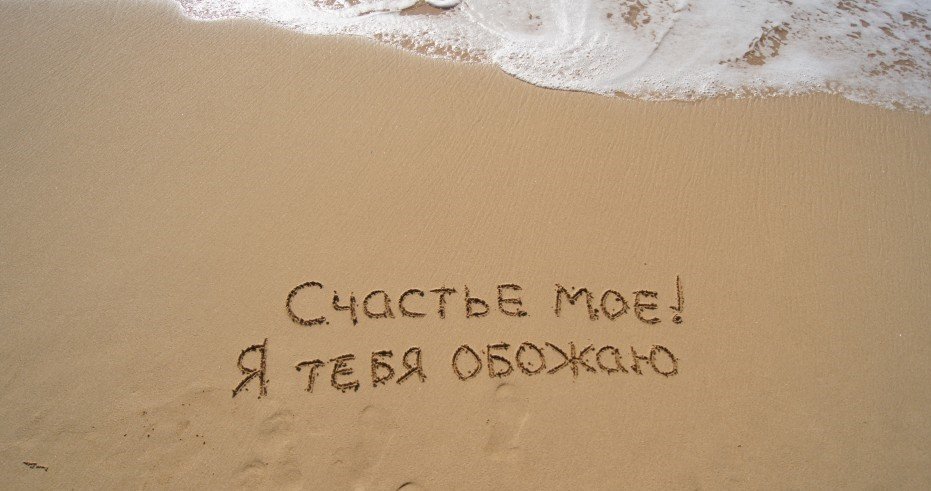 Счастье мое!
Я тебя обожаю